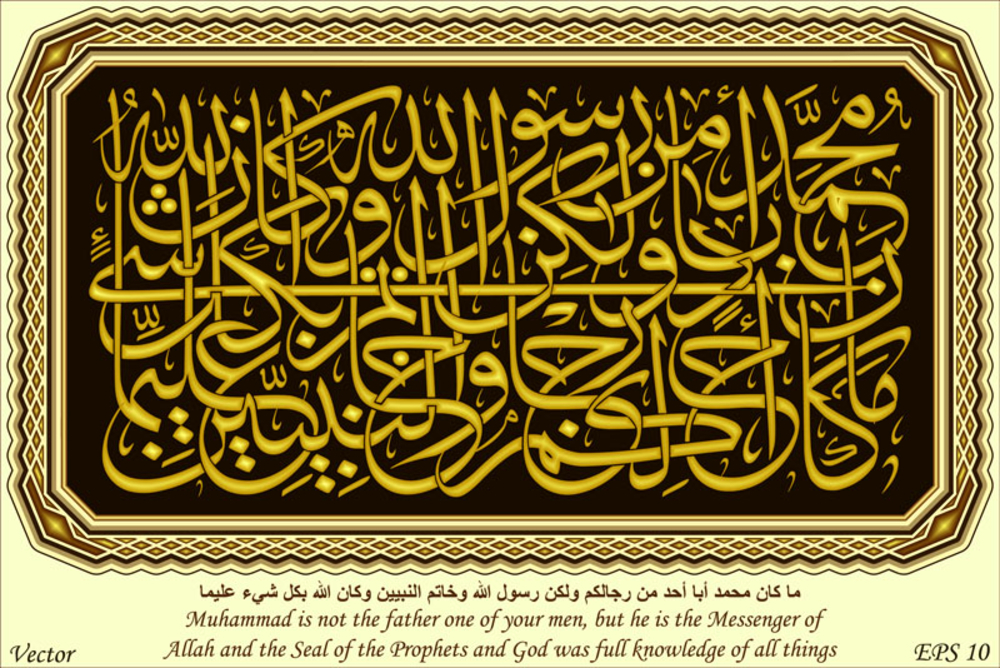 ما كان محمد أبا أحد من رجالكم ولكن رسول الله وخاتم النبيين وكان الله بكل شيء عليما
ما كان محمد أبا أحد من رجالكم ولكن رسول الله وخاتم النبيين وكان الله بكل شيء عليما
Muhammad is not the father one of your men, but he is the Messenger of
Allah and the Seal of the Prophets and God was full knowledge of all things
Vector
EPS 10